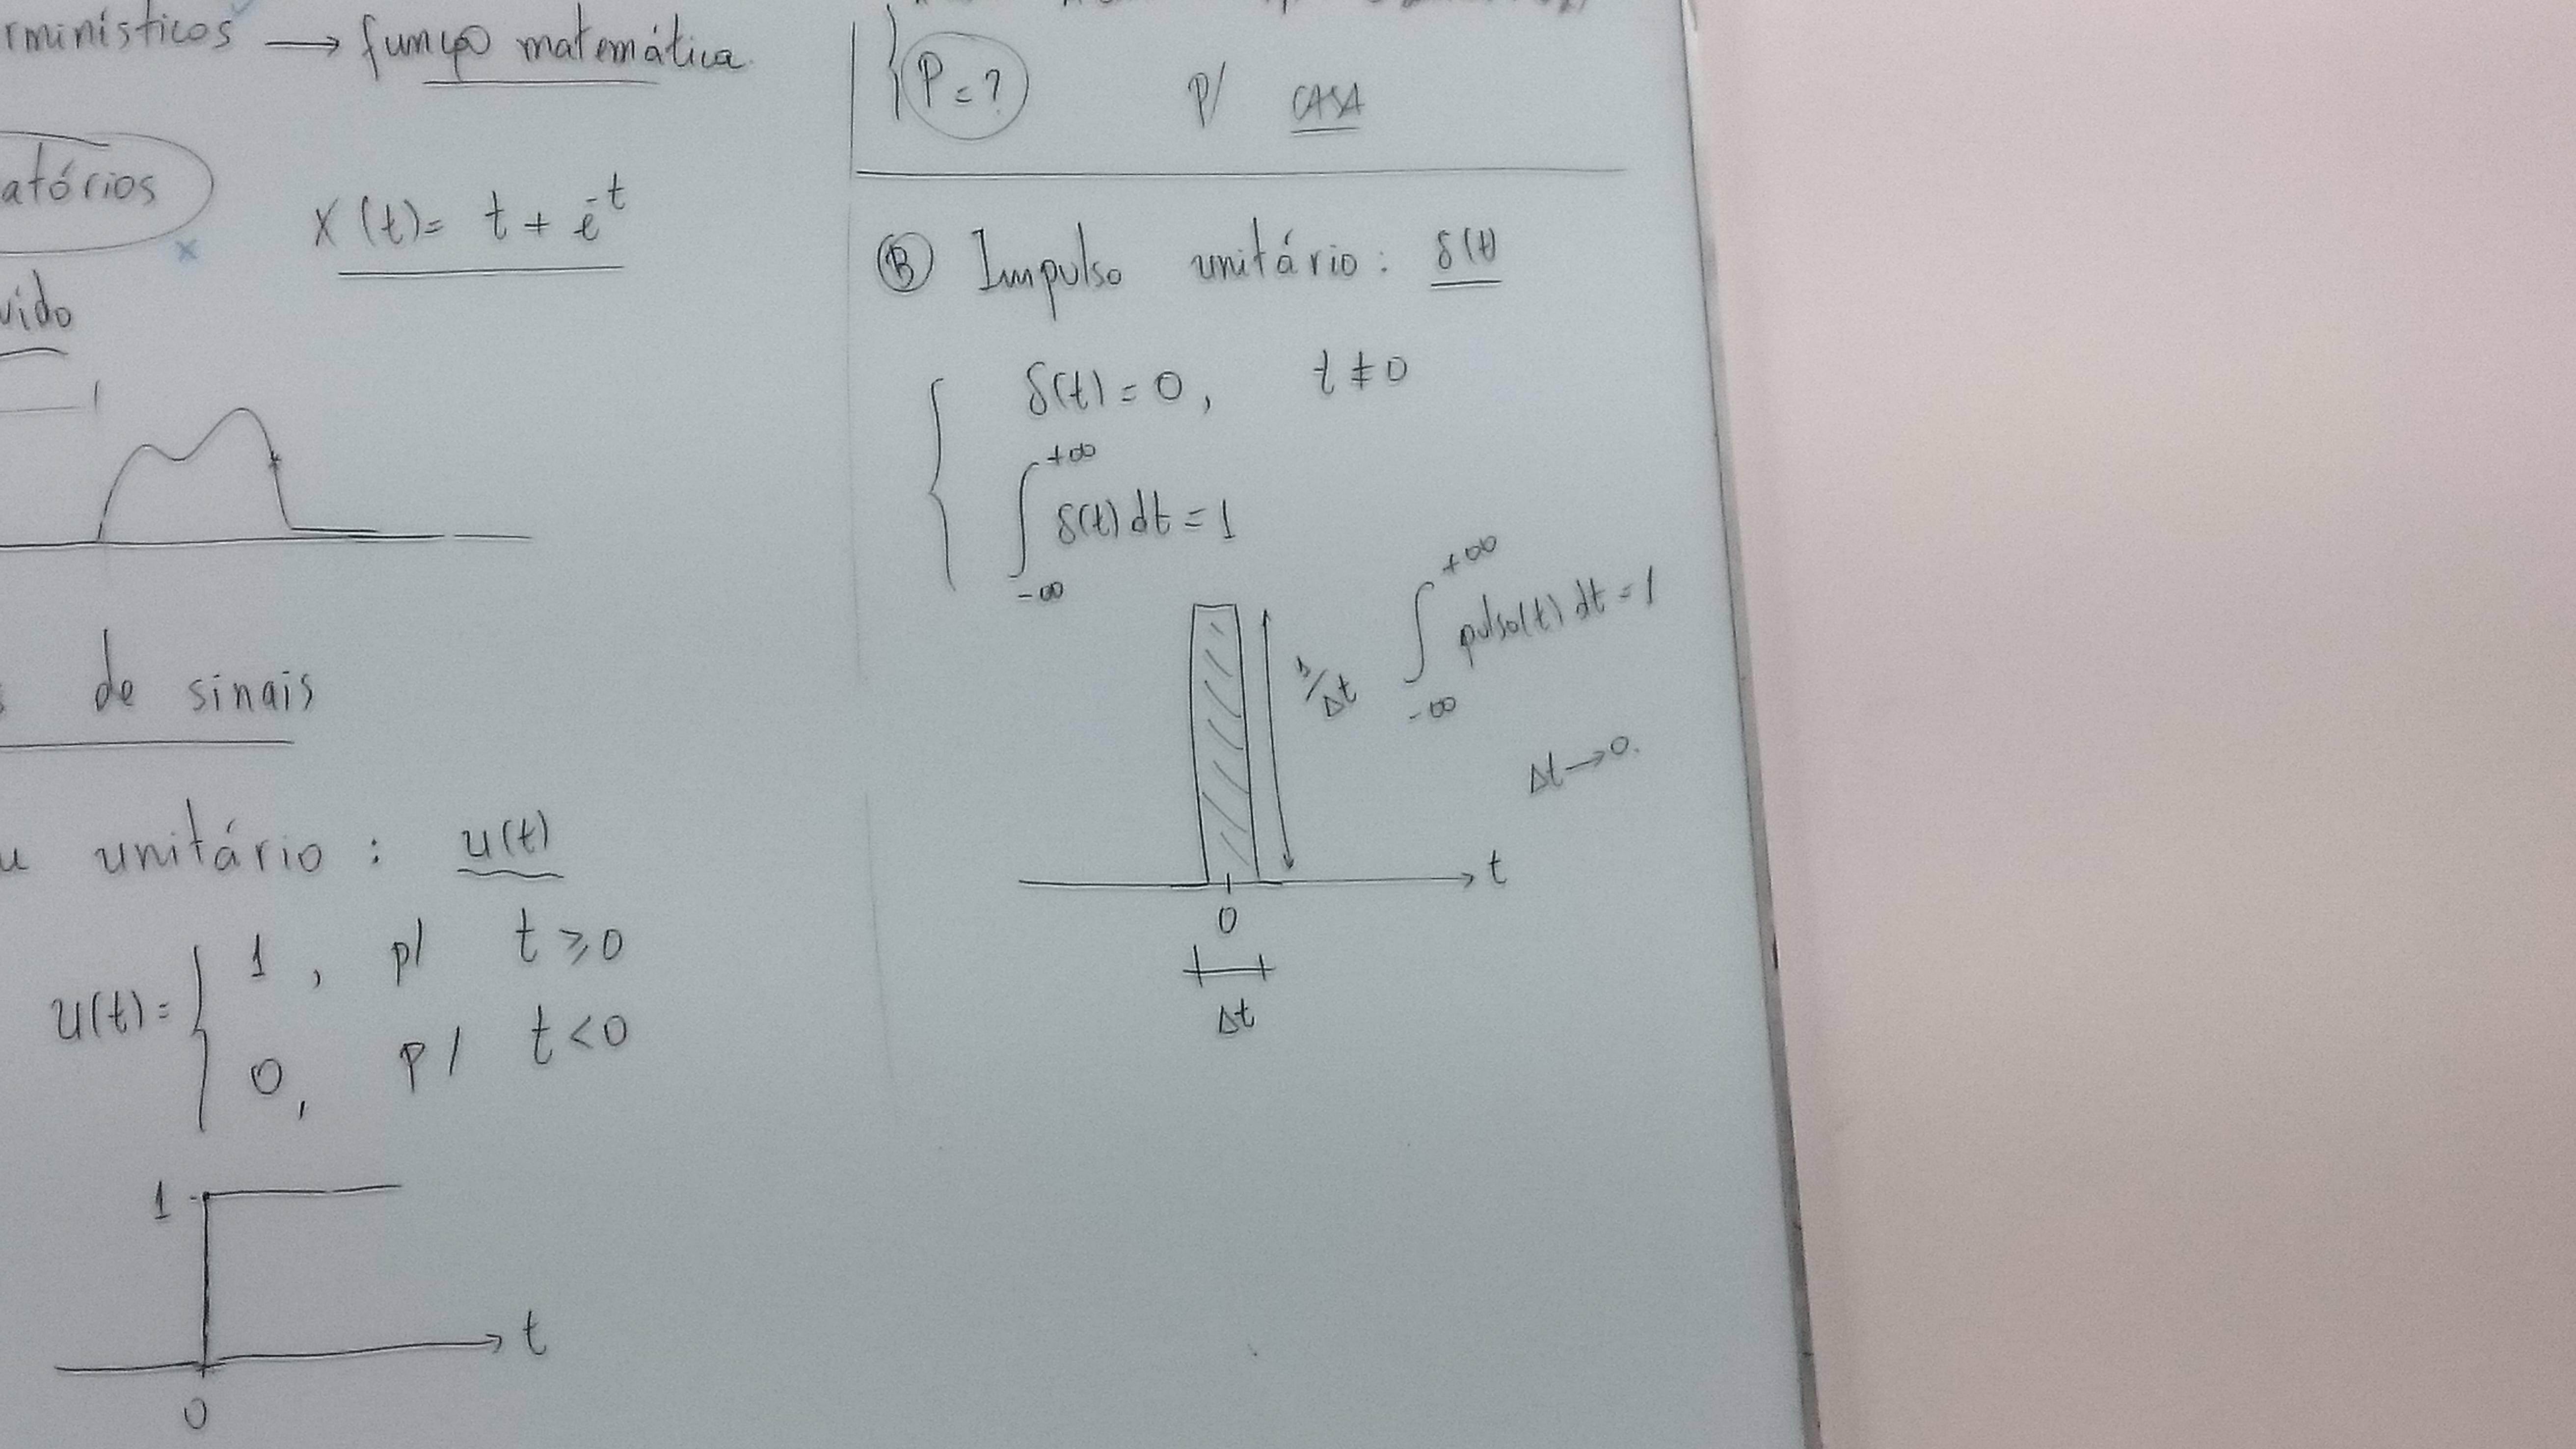 rminísticos → função matemática
atórios
x
X(t)= t + e^-t
vido
de sinais
u unitário : u(t)
u(t)= { 1 , p/ t ⩾ 0
0, p/ t < 0
1
t
0
P = ? p/ CASA
Ⓑ Impulso unitário : δ(t)
δ(t) = 0, t ≠ 0
∫_{-∞}^{+∞} δ(t) dt = 1
∫_{-∞}^{+∞} pulso(t) dt = 1
1/Δt
Δt → 0.
t
0
Δt